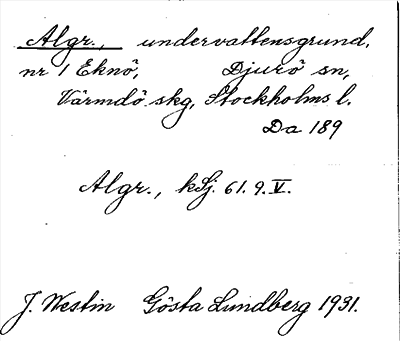 Algr., undervattensgrund,
nr 1 Eknö, Djurö sn,
Värmdö skg, Stockholms l.
Da 189
Algr., kSj. 61. 9. V.
J. Westin Gösta Lundberg 1931.